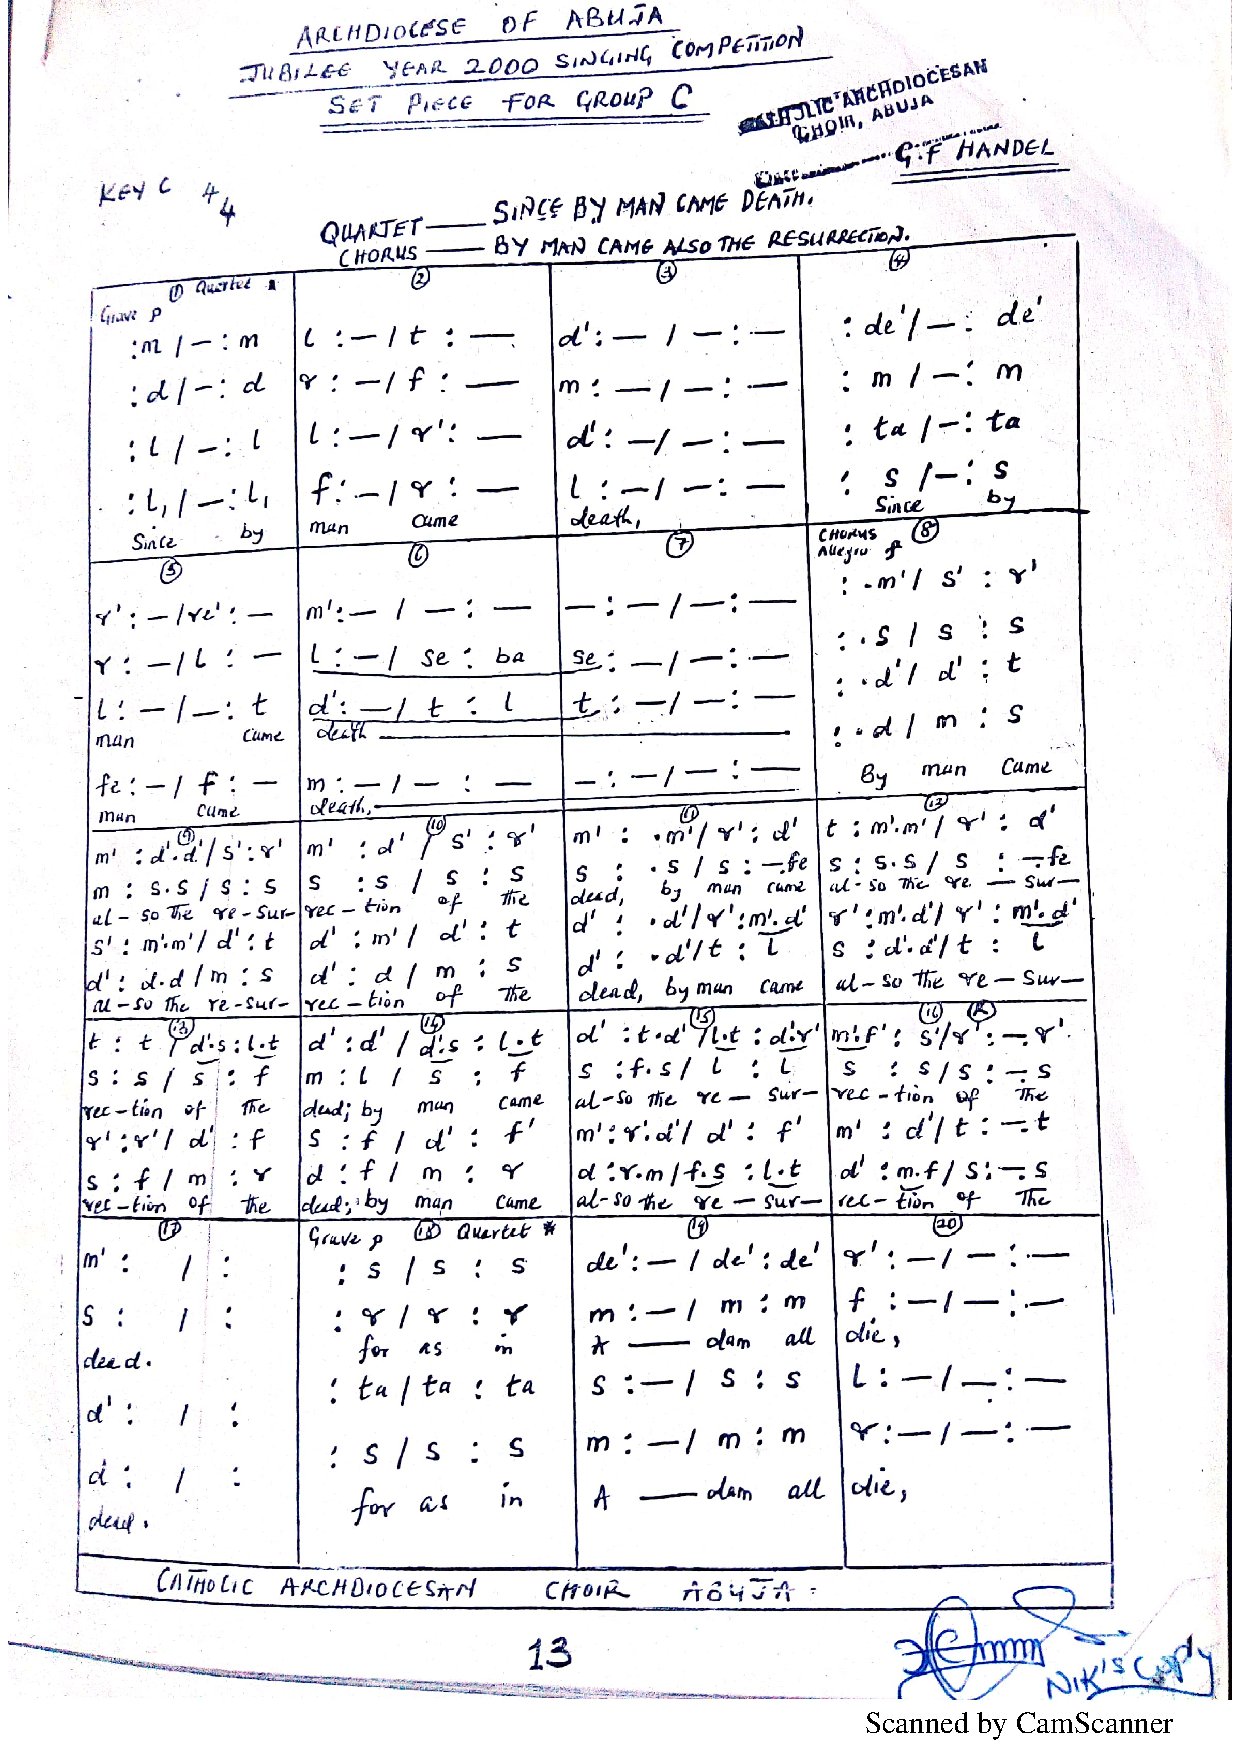 ARCHDIOCESE OF ABUJA
JUBILEE YEAR 2000 SINGING COMPETITION
SET PIECE FOR GROUP C
CATHOLIC ARCHDIOCESAN
CHOIR, ABUJA
Date
G.F HANDEL
KEY C 4/4
QUARTET — SINCE BY MAN CAME DEATH.
CHORUS — BY MAN CAME ALSO THE RESURRECTION.
① Quartet * ② ③ ④
Grave p
:m / – : m | l : – / t : — | d' : – / – : — | : de' / – : de'
: d / – : d | r : – / f : — | m : – / – : — | : m / – : m
: l / – : l | l : – / r' : — | d' : – / – : — | : ta / – : ta
: l₁ / – : l₁ | f : – / r : — | l : – / – : — | : s / – : s
Since by | man came | death, | Since by
⑤ ⑥ ⑦ CHORUS ⑧
Allegro f
r' : – / re' : – | m' : – / – : — | – : – / – : — | : . m' / s' : r'
r : – / l : – | l : – / se : ba | se : – / – : — | : . s / s : s
l : – / – : t | d' : – / t : l | t : – / – : — | : . d' / d' : t
man came | death
fe : – / f : – | m : – / – : — | – : – / – : — | : . d / m : s
man came | death, | By man came
⑨ ⑩ ⑪ ⑫
m' : d'.d' / s' : r' | m' : d' / s' : r' | m' : .m' / r' : d' | t : m'.m' / r' : d'
m : s.s / s : s | s : s / s : s | s : .s / s : –.fe | s : s.s / s : –.fe
al-so the re-sur- | rec-tion of the | dead, by man came | al-so the re-sur-
s' : m'.m' / d' : t | d' : m' / d' : t | d' : .d' / r' : m'.d' | r' : m'.d' / r' : m'.d'
d' : d.d / m : s | d' : d / m : s | d' : .d' / t : l | s : d'.d' / t : l
al-so the re-sur- | rec-tion of the | dead, by man came | al-so the re-sur-
⑬ ⑭ ⑮ ⑯
t : t / d'.s : l.t | d' : d' / d'.s : l.t | d' : t.d' / l.t : d'.r' | m'.f' : s' / r' : –.r'
s : s / s : f | m : l / s : f | s : f.s / l : l | s : s / s : –.s
rec-tion of the | dead; by man came | al-so the re-sur- | rec-tion of the
r' : r' / d' : f | s : f / d' : f' | m' : r'.d' / d' : f' | m' : d' / t : –.t
s : f / m : r | d : f / m : r | d : r.m / f.s : l.t | d' : m.f / s : –.s
rec-tion of the | dead; by man came | al-so the re-sur- | rec-tion of the
⑰ Grave p ⑱ Quartet * ⑲ ⑳
m' : / : | : s / s : s | de' : – / de' : de' | r' : – / – : —
s : / : | : r / r : r | m : – / m : m | f : – / – : —
dead. | for as in | A — dam all | die,
d' : / : | : ta / ta : ta | s : – / s : s | l : – / – : —
d : / : | : s / s : s | m : – / m : m | r : – / – : —
dead. | for as in | A — dam all | die,
CATHOLIC ARCHDIOCESAN CHOIR ABUJA.
13
NIK'S copy
Scanned by CamScanner